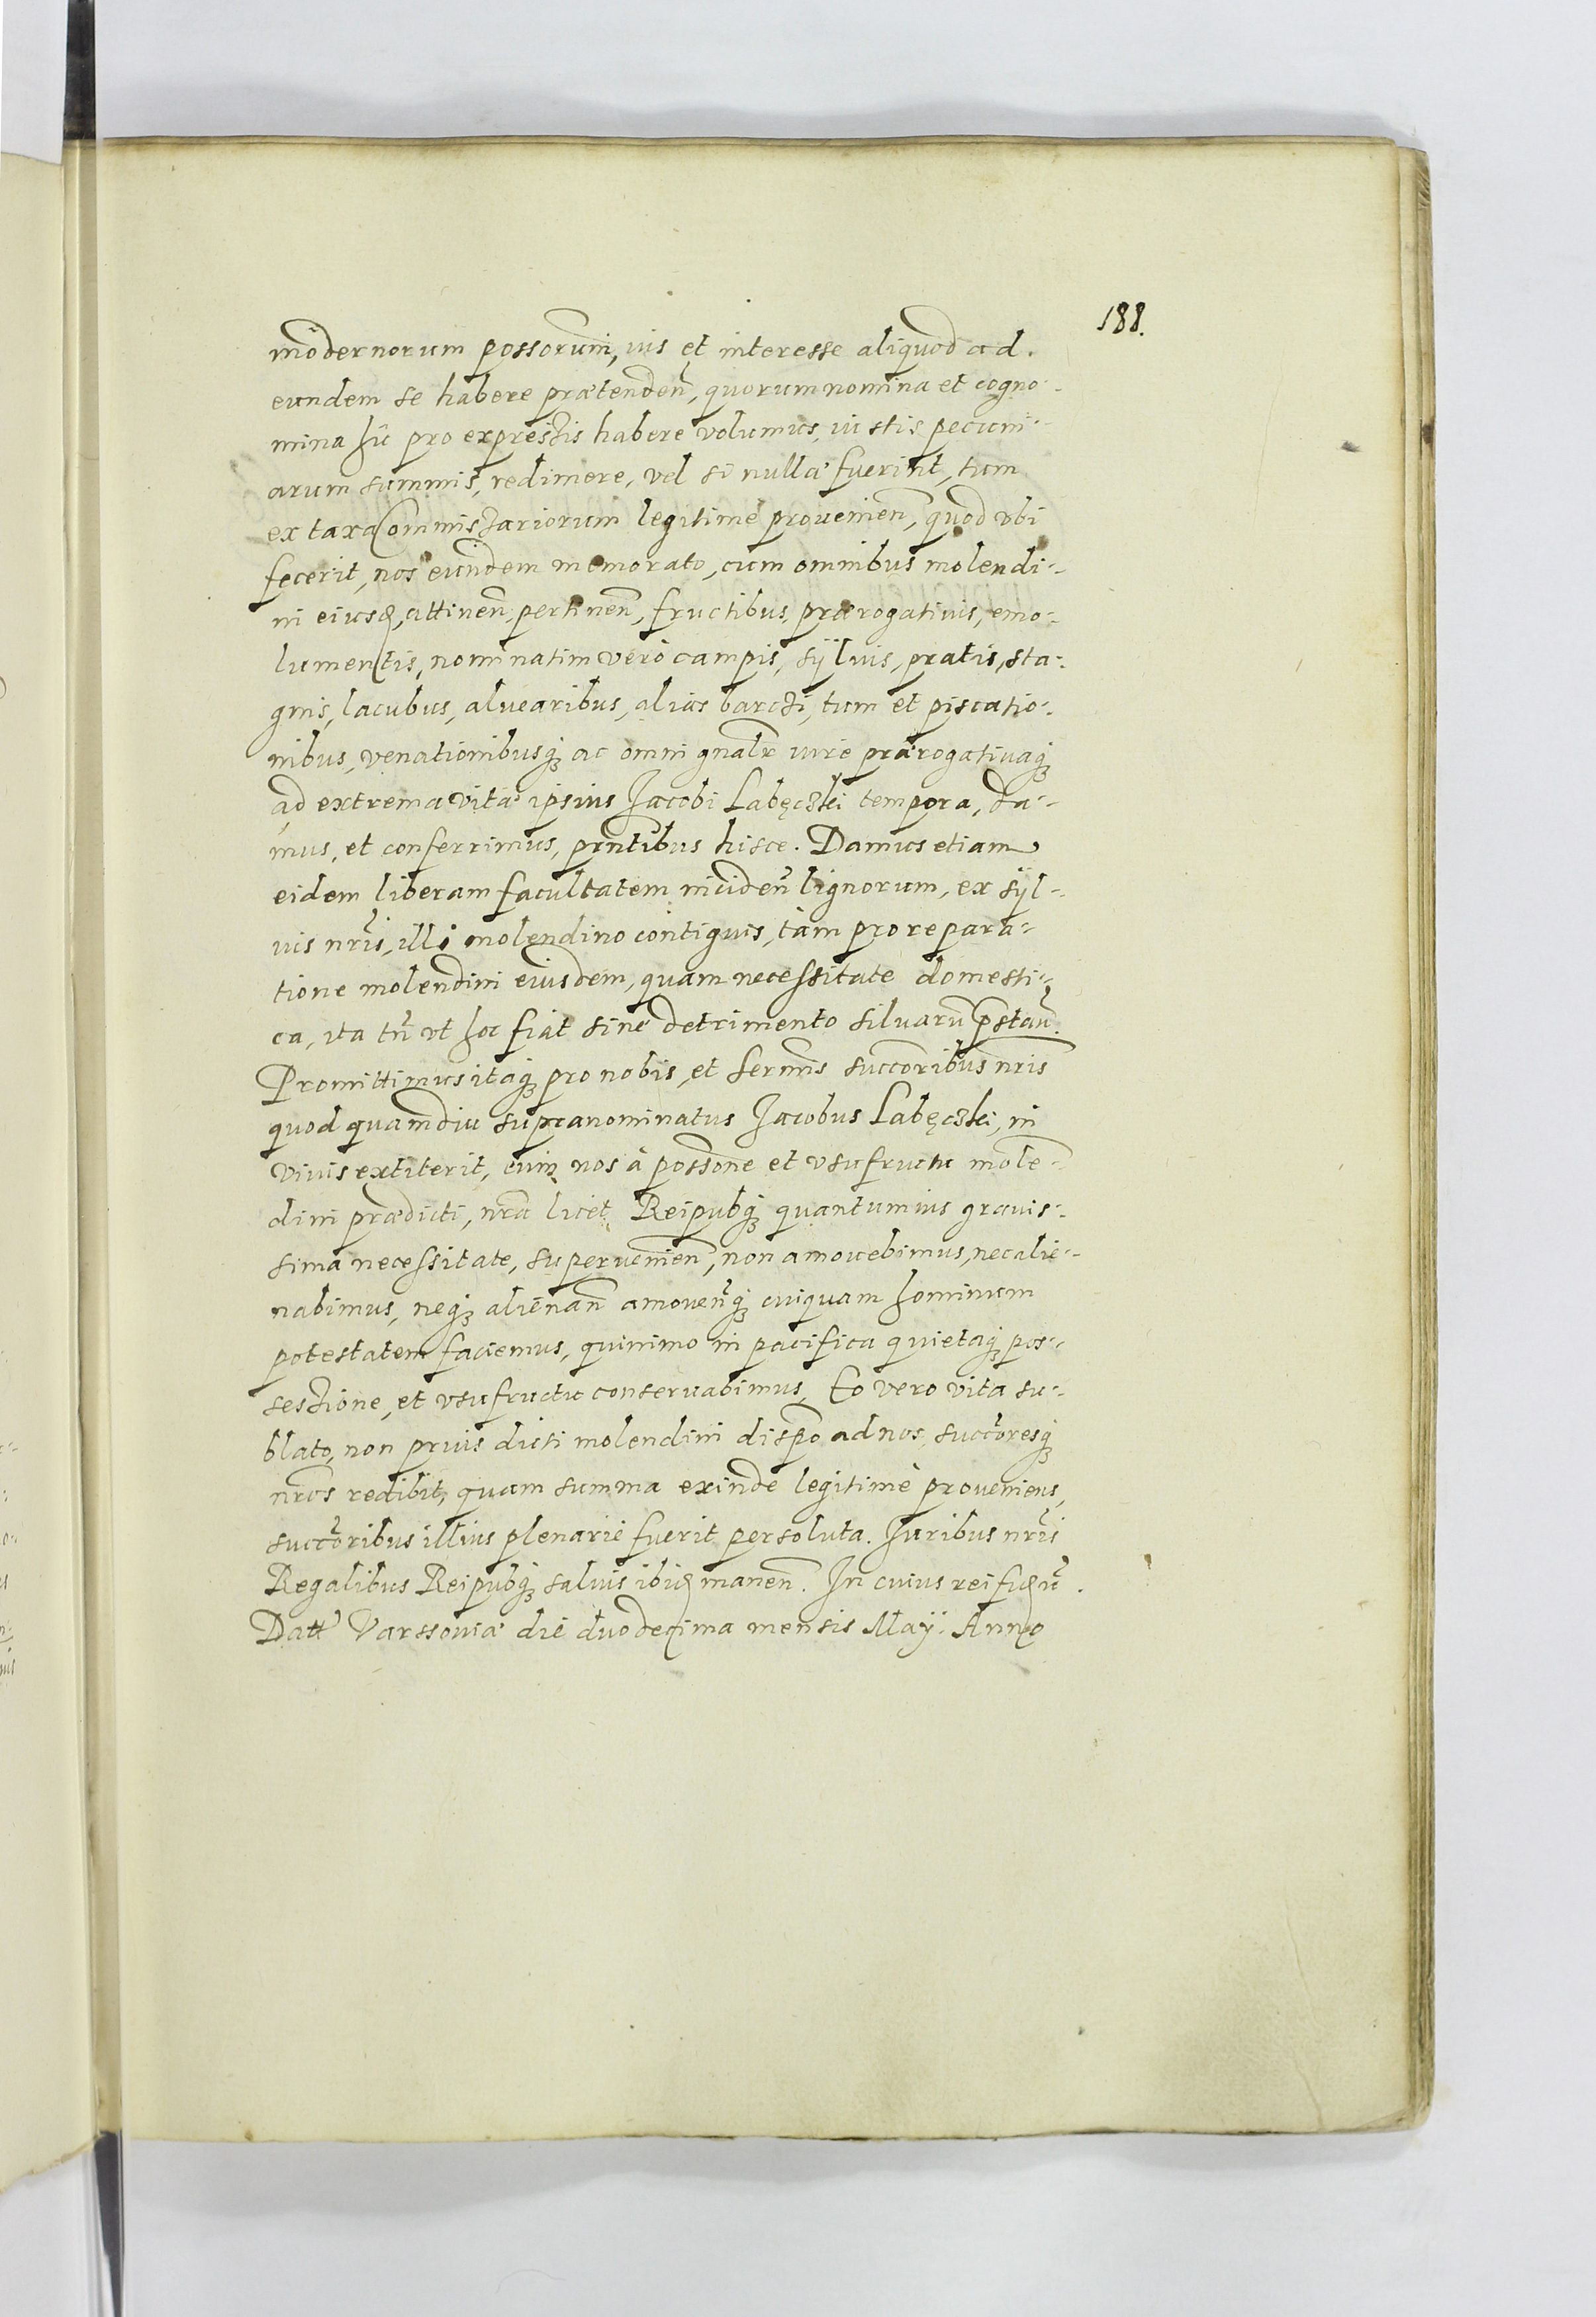 188.
modernorum possorum̃, ius et interesse aliquod ad.
eundem se habere prætenden̄, quorum nomina et cogno-
mina hic pro expressis habere volumus, iustis pecuni-
arum summis, redimere, vel si nullæ fuerint, tum
ex taxa Commissariorum legitime provenien̄, quod vbi
fecerit, nos eundem memorato, cum omnibus molendi-
ni eiusđ, attinen̄, pertinen̄, fructibus, prærogativis, emo-
lumentis, nominatim vero campis, sÿluis, pratis, sta-
gnis, lacubus, aluearibus, alias barczi, tum et piscatio-
nibus, venationibusq3 ac omni gnalr̃ iure prærogatiuaq3
ad extrema vitæ ipsius Jacobi Labęczki tempora, da-
mus, et conferrimus, prñtibus hisce. Damus etiam
eidem liberam facultatem inciden̄ lignorum, ex sÿl-
uis nr̃is, illi molendino contiguis, tàm pro repara-
tione molendini eiusdem, quam necessitate domesti-
ca, ita tñ vt hoc fiat sine detrimento siluarũ p̃staũ.
Promittimus itaq3 pro nobis, et Sermis succoribus nris
quod quamdiu supranominatus Jacobus Labęczki, in
viuis extiterit, eum nos à possone et vsufructu mole-
dini prædicti, nrã licet Reipubq3 quantumuis grauis-
sima necessitate, superuenien̄, non amouebimus, nec alie-
nabimus, neq3 alienan̄ amouen̄q3 cuiquam hominum
potestatem faciemus, quinimo in pacifica quietaq3 pos-
sessione, et vsufructu conseruabimus, Eo vero vita su-
blato, non prius dicti molendini dispõ ad nos, succoresq3
nros redibit, quam summa exinde legitimè proveniens,
succoribus illius plenarie fuerit persoluta. Juribus nr̃is
Regalibus Reipubq3 saluis ibiđ manen̄. In cuius rei fiđũ.
Datt Varssouiæ die duodecima mensis Maÿ. Anno